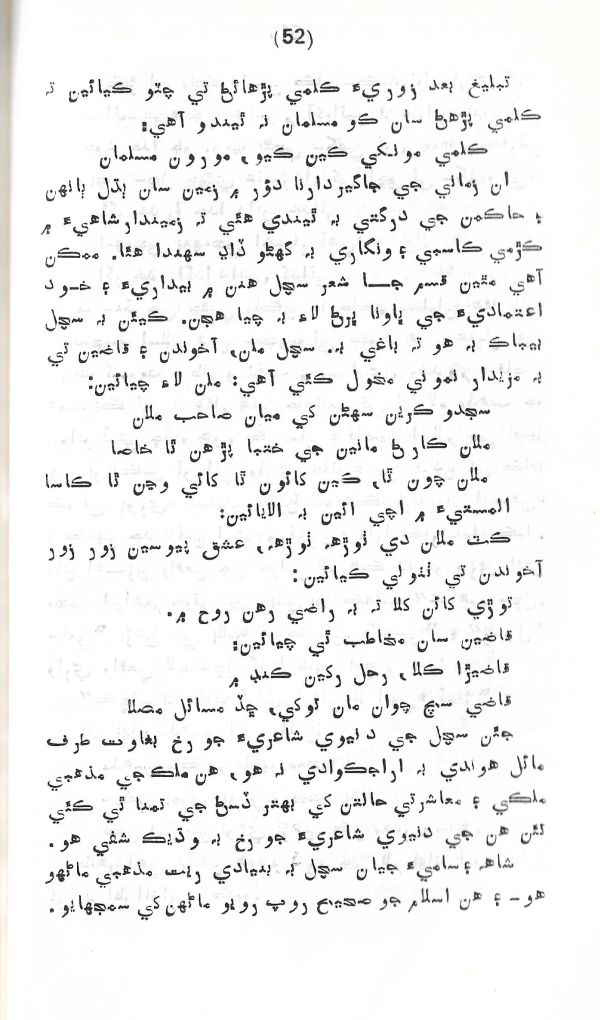 (52)
تبليغ بعد زوريءَ ڪلمي پڙهائڻ تي چٿو ڪيائين تہ
ڪلمي پڙهڻ سان ڪو مسلمان نہ ٿيندو آهي:
ڪلمي مونکي ڪين ڪيو، مورون مسلمان
ان زماني جي جاگيردارنا دؤر ۾ زمين سان ٻڌل ٻانهن
۽ حاڪمن جي درگتي بہ ٿيندي هئي تہ زميندارشاهيءَ ۾
ڪڙمي ڪاسبي ۽ ونگاري بہ گهڻو ڏاڍ سهندا هئا. ممڪن
آهي مٿين قسم جا شعر سچل هنن ۾ بيداريءَ ۽ خود
اعتماديءَ جي ڀاونا ڀرڻ لاءِ بہ چيا هجن. ڪيئن بہ سچل
بيباڪ بہ هو تہ باغي بہ. سچل ملن، آخوندن ۽ قاضين تي
بہ مزيدار نموني مخول ڪئي آهي: ملن لاءِ چيائين:
سجدو ڪرين سهڻن کي ميان صاحب ملان
ملان ڪارڻ مانين جي ختبا پڙهن ٿا خاصا
ملان چون ٿا، ڪين کائون ٿا کائي وڃن ٿا ڪاسا
المستيءَ ۾ اچي ائين بہ الايائين:
ڪٽ ملان دي ٺوڙهہ ٺوڙهہ، عشق پيوسين زور زور
آخوندن تي ٺٺولي ڪيائين:
توڙي کائن کلا تہ بہ راضي رهن روح ۾.
قاضين سان مخاطب ٿي چيائين:
قاضيڙا کلا، رحل رکين ڪنڊ ۾
قاضي سچ چوان مان ٿوکي، ڇڏ مسائل مصلا
جئن سچل جي دنيوي شاعريءَ جو رخ بغاوت طرف
مائل هوندي بہ اراجڪوادي نہ هو، هن ملڪ جي مذهبي
ملڪي ۽ معاشرتي حالتن کي بهتر ڏسڻ جي تمنا ٿي ڪئي
تئن هن جي دنيوي شاعريءَ جو رخ بہ وڌيڪ شفي هو.
شاهہ ۽ ساميءَ جيان سچل بہ بنيادي ريت مذهبي ماڻهو
هو- ۽ هن اسلام جو صحيح روپ رويو ماڻهن کي سمجهايو.